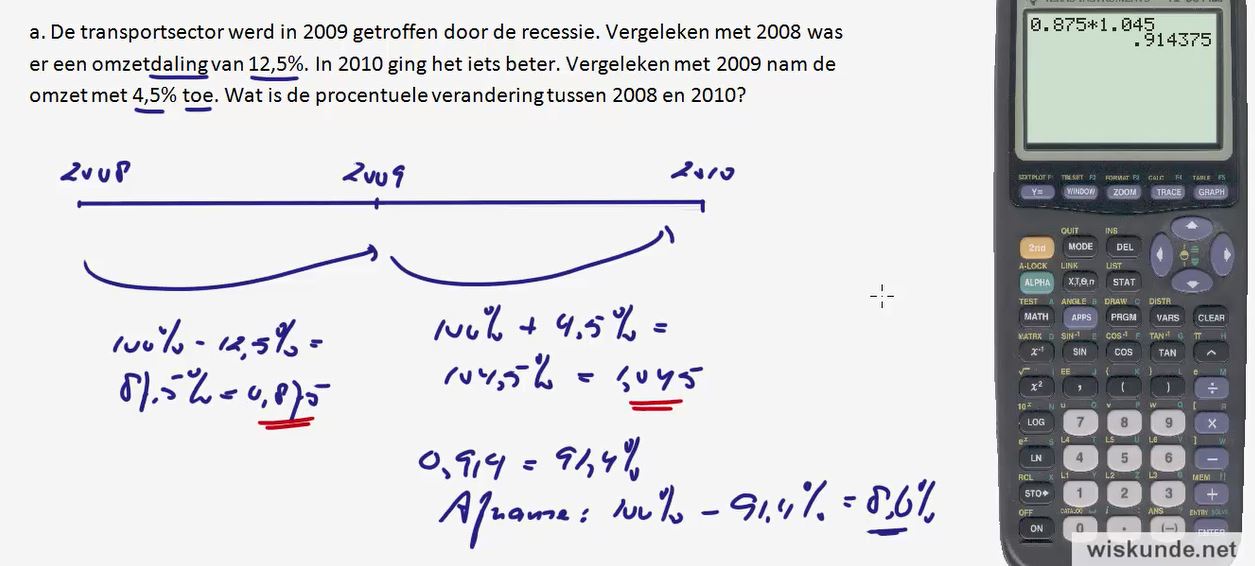 a. De transportsector werd in 2009 getroffen door de recessie. Vergeleken met 2008 was
er een omzetdaling van 12,5%. In 2010 ging het iets beter. Vergeleken met 2009 nam de
omzet met 4,5% toe. Wat is de procentuele verandering tussen 2008 en 2010?
2008 2009 2010
100% - 12,5% =
87,5% = 0,875
100% + 4,5% =
104,5% = 1,045
0,914 = 91,4%
Afname: 100% - 91,4% = 8,6%
0.875*1.045
.914375
STATPLOT F1 TBLSET F2 FORMAT F3 CALC F4 TABLE F5
Y= WINDOW ZOOM TRACE GRAPH
QUIT INS
2nd MODE DEL
A-LOCK LINK LIST
ALPHA X,T,θ,n STAT
TEST A ANGLE B DRAW C DISTR
MATH APPS PRGM VARS CLEAR
MATRX D SIN⁻¹ E COS⁻¹ F TAN⁻¹ G π H
x⁻¹ SIN COS TAN ^
√ I EE J { K } L e M
x² , ( ) ÷
10ˣ N u O v P w Q [ R
LOG 7 8 9 ×
eˣ S L4 T L5 U L6 V ] W
LN 4 5 6 −
RCL X L1 Y L2 Z L3 θ MEM "
STO▸ 1 2 3 +
OFF CATALOG i ANS ? ENTRY SOLVE
ON 0 . (−) ENTER
wiskunde.net